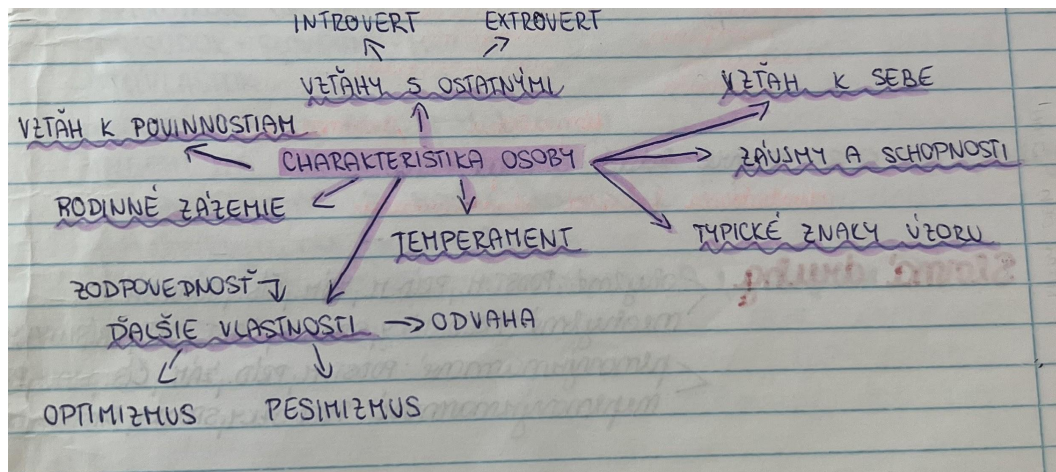 INTROVERT EXTROVERT
VZŤAHY S OSTATNÝMI
VZŤAH K SEBE
VZŤAH K POVINNOSTIAM
CHARAKTERISTIKA OSOBY
ZÁUJMY A SCHOPNOSTI
RODINNÉ ZÁZEMIE
TEMPERAMENT
TYPICKÉ ZNAKY VZORU
ZODPOVEDNOSŤ
ĎALŠIE VLASTNOSTI ODVAHA
OPTIMIZMUS PESIMIZMUS